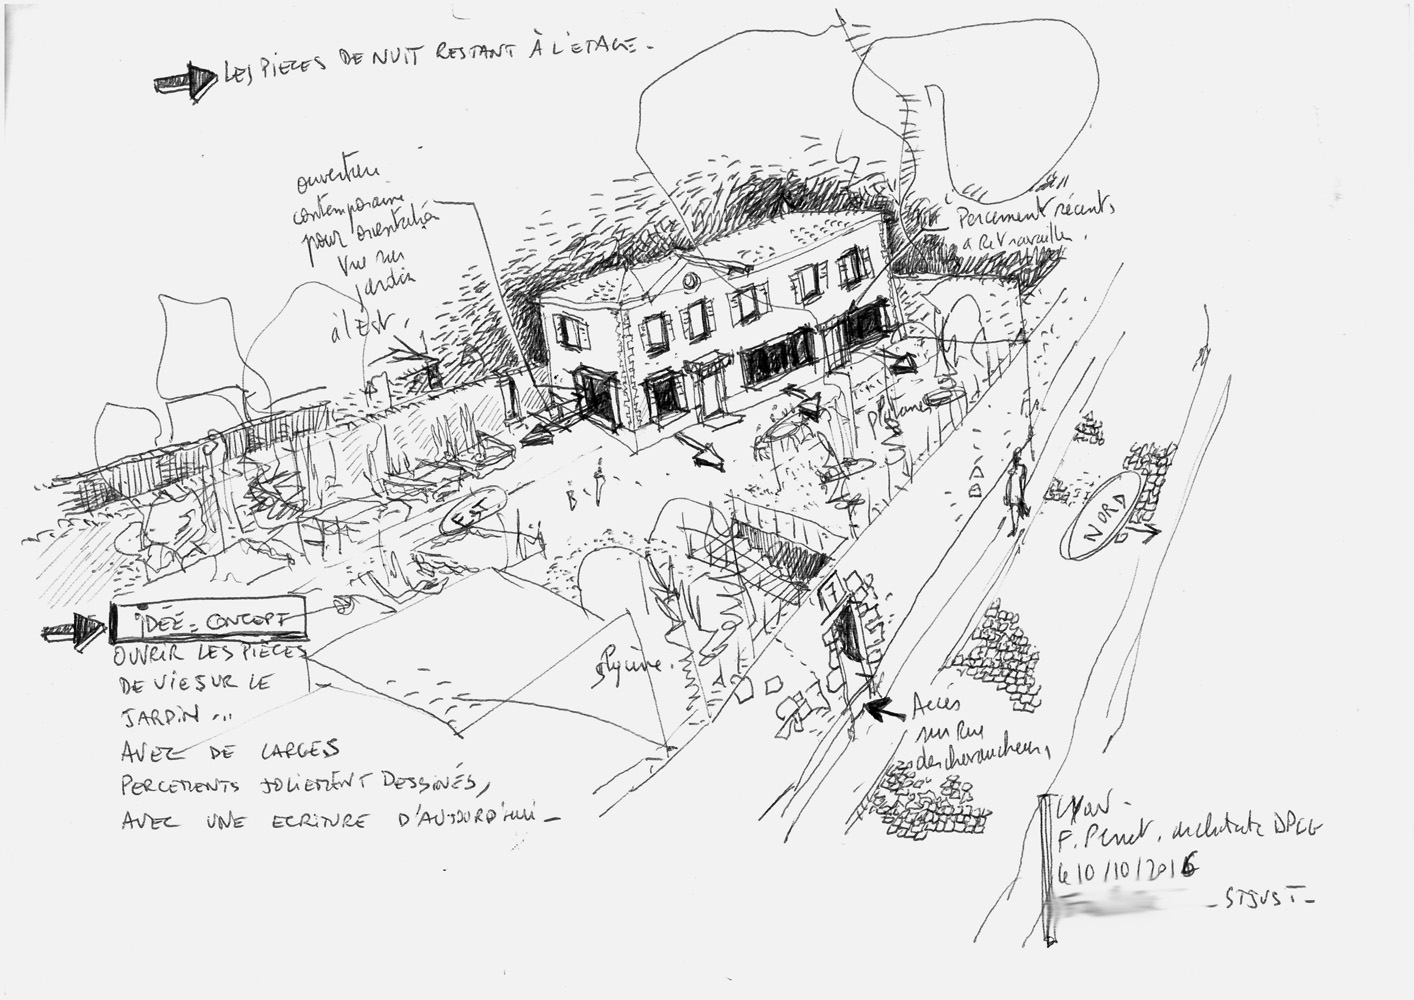 LES PIECES DE NUIT RESTANT À L'ETAGE -
ouverture
contemporaine
pour orientation
Vue sur
jardin
à l'Est.
Percement récents
à Retravailler.
Platanes
EST
NORD
IDÉE - CONCEPT
OUVRIR LES PIÈCES
DE VIE SUR LE
JARDIN ...
AVEC DE LARGES
PERCEMENTS JOLIEMENT DESSINÉS,
AVEC UNE ECRITURE D'AUJOURD'HUI -
glycine.
Accés
sur Rue
des chevaucheurs,
Lyon -
F. Perret, architecte DPLG
le 10/10/2016
- ST JUST -